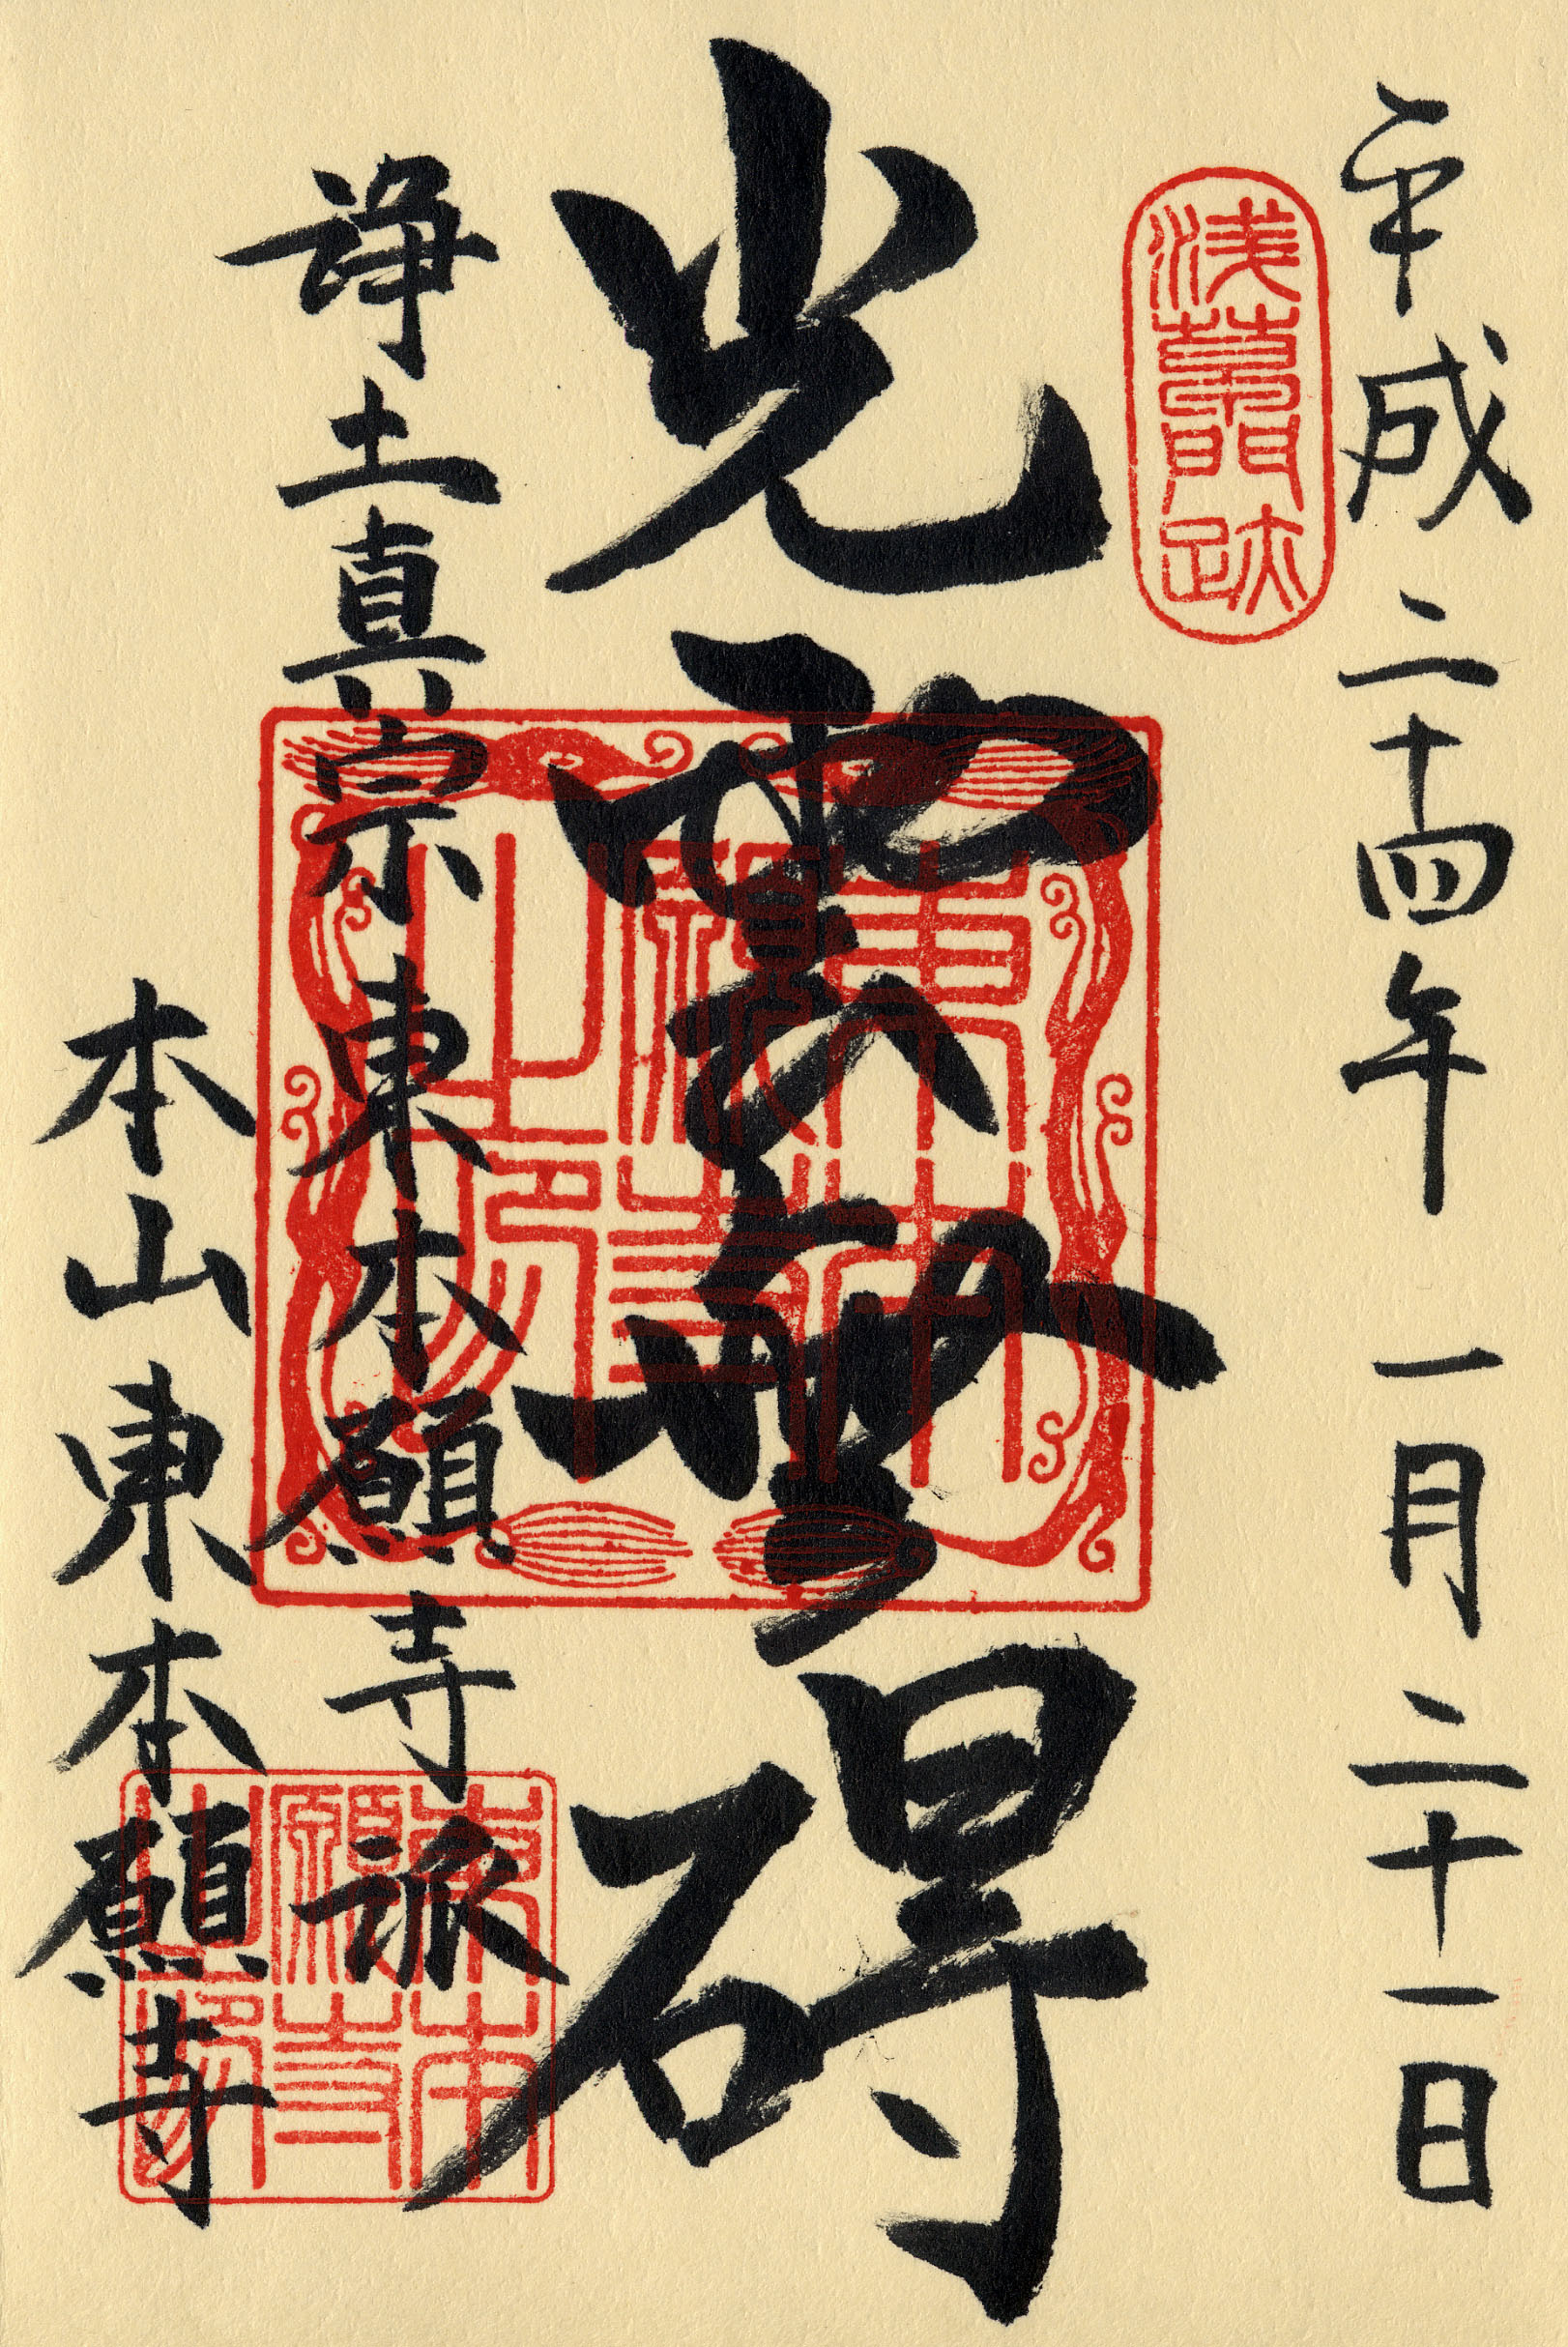 平成二十四年 一月二十一日
浅草門跡
光雲無碍
東本願寺之印
浄土真宗東本願寺派
本山東本願寺
東本願寺之印